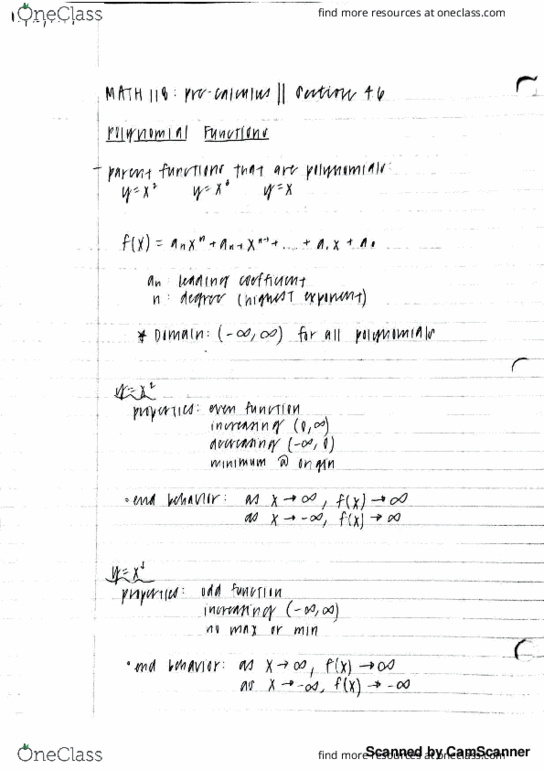 OneClass
find more resources at oneclass.com
MATH 118: pre-calculus || Section 4.6
Polynomial Functions
- parent functions that are polynomials:
y=x² y=x³ y=x
f(x) = aₙxⁿ + aₙ₋₁xⁿ⁻¹ + .... + a₁x + a₀
aₙ: leading coefficient
n: degree (highest exponent)
* Domain: (-∞, ∞) for all polynomials
y=x²
properties: even function
increasing (0, ∞)
decreasing (-∞, 0)
minimum @ origin
• end behavior: as x → ∞, f(x) → ∞
as x → -∞, f(x) → ∞
y=x³
properties: odd function
increasing (-∞, ∞)
no max or min
• end behavior: as x → ∞, f(x) → ∞
as x → -∞, f(x) → -∞
OneClass
find more resources at oneclass.com
Scanned by CamScanner